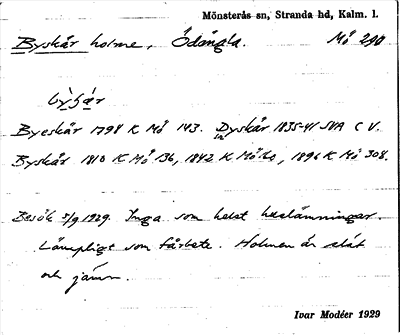 Mönsterås sn, Stranda hd, Kalm. l.
Byskär holme, Ödängla. Mö 290
Byeskär 1798 K Mö 143. Dyskär 1835-41 SVA C V.
Byskär 1810 K Mö 136, 1842 K Mö 60, 1896 K Mö 308.
Besök 5/9 1929. Inga som helst beslämningar.
Lämpligt som fårbete. Holmen är slät
och jämn.
Ivar Modéer 1929